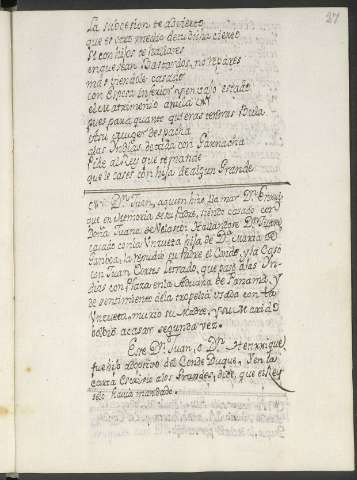 27
La subcesion te advierto
que es otro medio de tu dicha cierto
si con hijos te hallares
en que sean Bastardos, no repares
mas si en doble casado
con Esposa inferior
el Matrimonio anula
pues para quanto quieras tenemos Bula
A su muger despacha
a las Indias de toda con Garnacha
Pide al Rey que te mande
que le cases con hija de algun Grande
Dn. Juan, a quien hizo llamar Dn. Enrri
que en Memoria de su Padre, siendo casado con
Doña Juana de Velasco hallandose Dn. Juan
casado con la Unzueta hija de Da. Maria de
Gamboa, la repudió su Padre el Conde, y la Casó
con Juan Cortes Letrado, que pasó a las In
dias con Plaza en la Audiencia de Panamá, y
de sentimiento de la tropelia usada con la
Unzueta murio su Madre, y su Marido
bolbió a casar segunda vez.
Este Dn. Juan, o Dn. Henrrique
fue hijo adoptivo del Conde Duque. Y en la
carta Escrivio a los Grandes, dice, que el Rey
selo havia mandado.